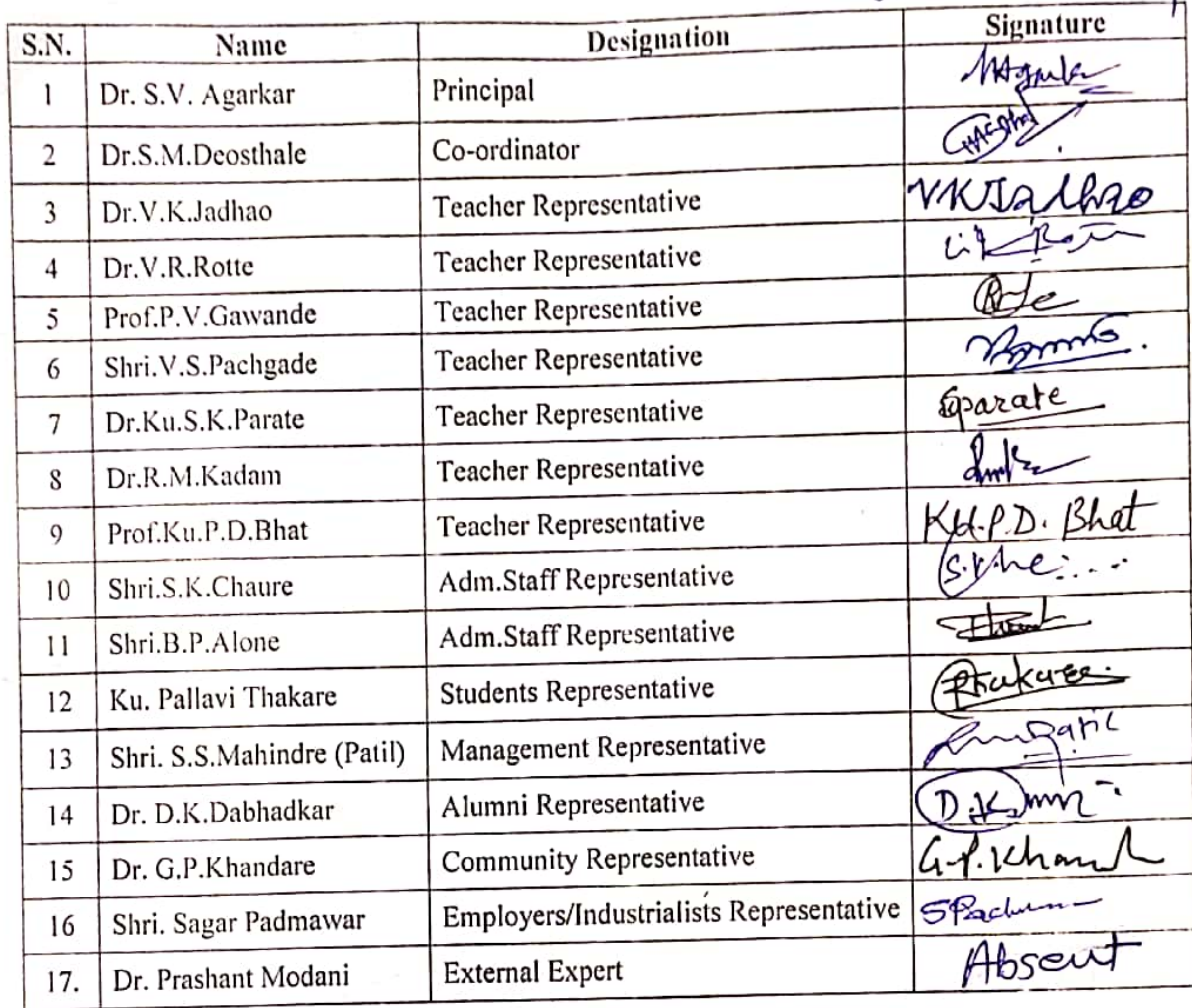 S.N. Name Designation Signature
1 Dr. S.V. Agarkar Principal
2 Dr.S.M.Deosthale Co-ordinator
3 Dr.V.K.Jadhao Teacher Representative VKJadhao
4 Dr.V.R.Rotte Teacher Representative
5 Prof.P.V.Gawande Teacher Representative
6 Shri.V.S.Pachgade Teacher Representative
7 Dr.Ku.S.K.Parate Teacher Representative Sparate
8 Dr.R.M.Kadam Teacher Representative
9 Prof.Ku.P.D.Bhat Teacher Representative Ku.P.D. Bhat
10 Shri.S.K.Chaure Adm.Staff Representative
11 Shri.B.P.Alone Adm.Staff Representative
12 Ku. Pallavi Thakare Students Representative
13 Shri. S.S.Mahindre (Patil) Management Representative
14 Dr. D.K.Dabhadkar Alumni Representative
15 Dr. G.P.Khandare Community Representative
16 Shri. Sagar Padmawar Employers/Industrialists Representative
17. Dr. Prashant Modani External Expert Absent